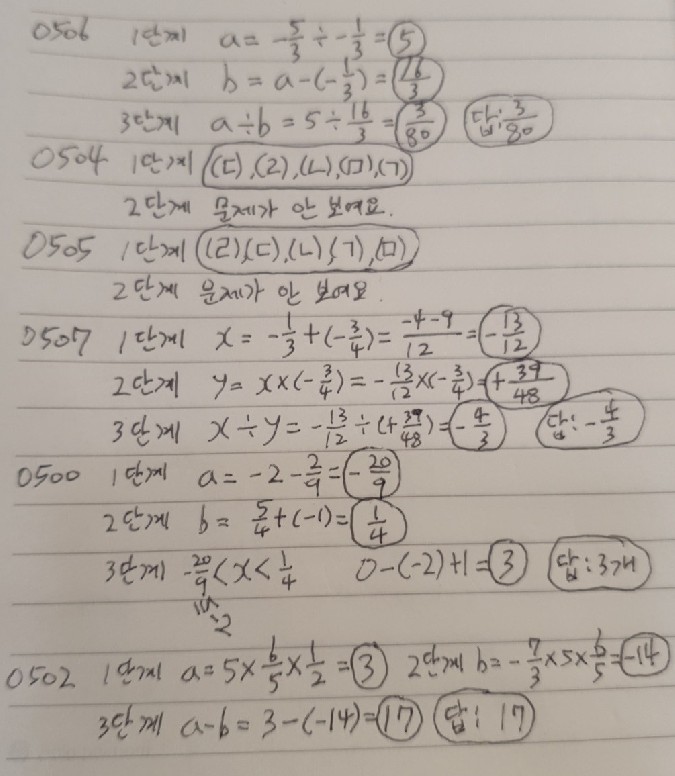 0506 1단계 a = -5/3 ÷ -1/3 = 5
2단계 b = a-(-1/3) = 16/3
3단계 a÷b = 5÷16/3 = 3/80 답: 3/80
0504 1단계 (ㄷ),(2),(ㄴ),(ㅁ),(ㄱ)
2단계 문제가 안 보여요.
0505 1단계 (ㄹ),(ㄷ),(ㄴ),(ㄱ),(ㅁ)
2단계 문제가 안 보여요.
0507 1단계 x = -1/3+(-3/4) = -4-9/12 = -13/12
2단계 y = x×(-3/4) = -13/12×(-3/4) = +39/48
3단계 x÷y = -13/12÷(+39/48) = -4/3 답: -4/3
0500 1단계 a = -2-2/9 = -20/9
2단계 b = 5/4+(-1) = 1/4
3단계 -20/9<x<1/4 0-(-2)+1=3 답: 3개
-2
0502 1단계 a=5×6/5×1/2=3 2단계 b=-7/3×5×6/5=-14
3단계 a-b = 3-(-14)=17 답: 17